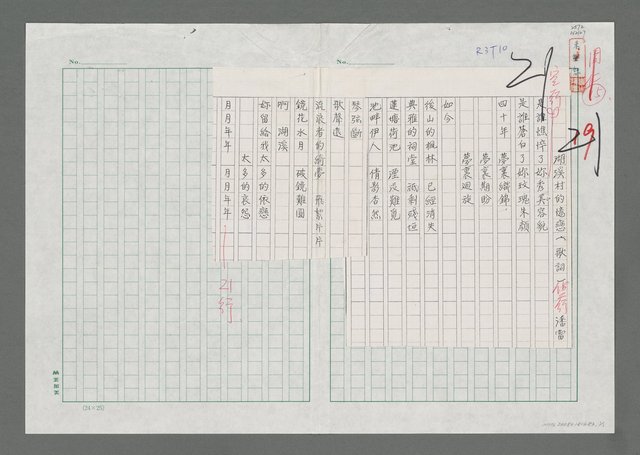 R3T10
21
29
No.
No.
湖溪村的憶戀(歌詞) 潘雷
是誰憔悴了妳秀美容貌
是誰蒼白了妳玫瑰朱顏
四十年 夢裏織錦
夢裏期盼
夢裏迴旋
如今
後山的楓林 已經消失
典雅的祠堂 祇剩殘垣
蓮塘荷池 湮沒難覓
池畔伊人 倩影杳然
琴弦斷
歌聲遠
流浪者的綺夢 飛絮片片
鏡花水月 破鏡難圓
啊 湖溪
妳留給我太多的依戀
太多的哀怨
月月年年 月月年年
21行
(24×25)